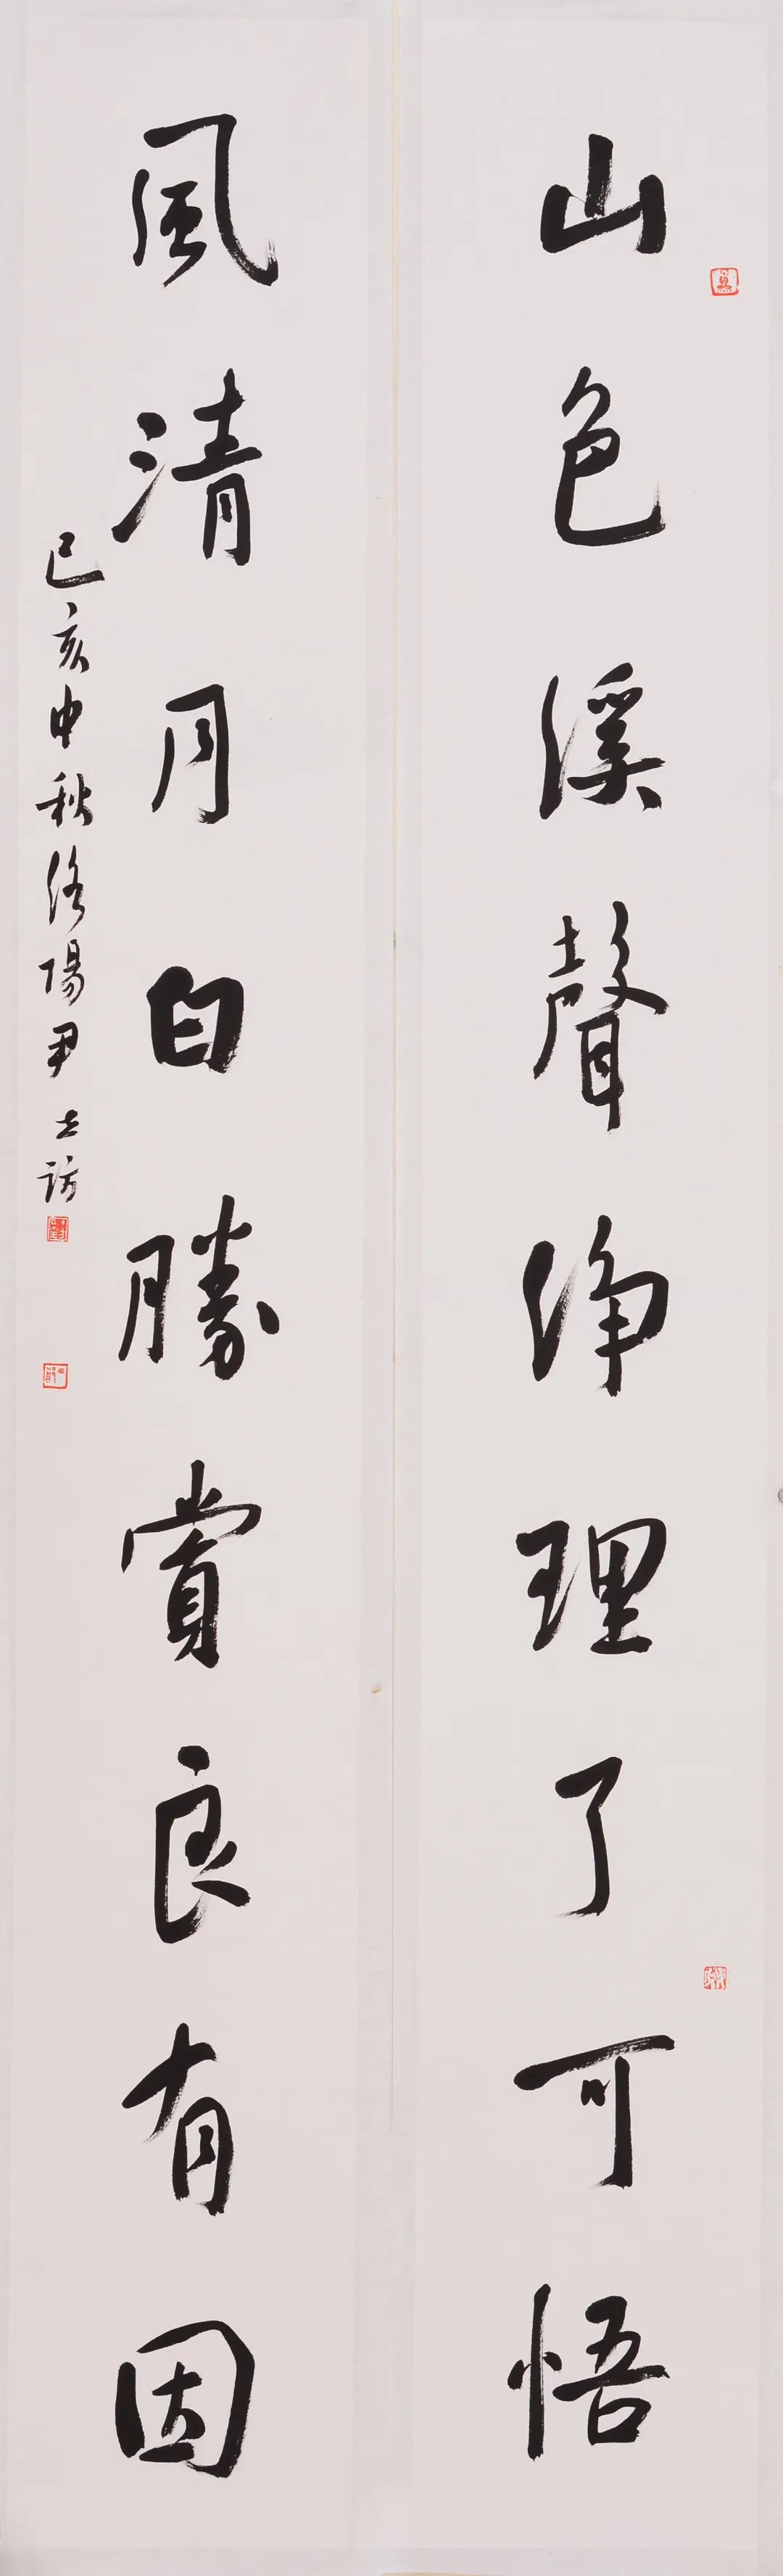 山色溪聲净理了可悟
風清月白勝賞良有因
己亥中秋洛陽尹士訪